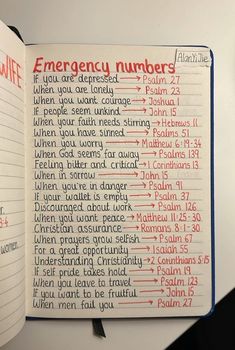 WIFE
women.
Alan Yue
Emergency numbers
If you are depressed → Psalm 27
When you are lonely → Psalm 23
When you want courage → Joshua 1
If people seem unkind → John 15
When your faith needs stirring → Hebrews 11
When you have sinned → Psalms 51
When you worry → Matthew 6:19-34
When God seems far away → Psalms 139
Feeling bitter and critical → 1 Corinthians 13
When in sorrow → John 15
When you're in danger → Psalm 91
If your wallet is empty → Psalm 37
Discouraged about work → Psalm 126
When you want peace → Matthew 11:25-30
Christian assurance → Romans 8:1-30
When prayers grow selfish → Psalm 67
For a great opportunity → Isaiah 55
Understanding Christianity → 2 Corinthians 5:15
If self pride takes hold → Psalm 19
When you leave to travel → Psalm 123
If you want to be fruitful → John 15
When men fail you → Psalm 27